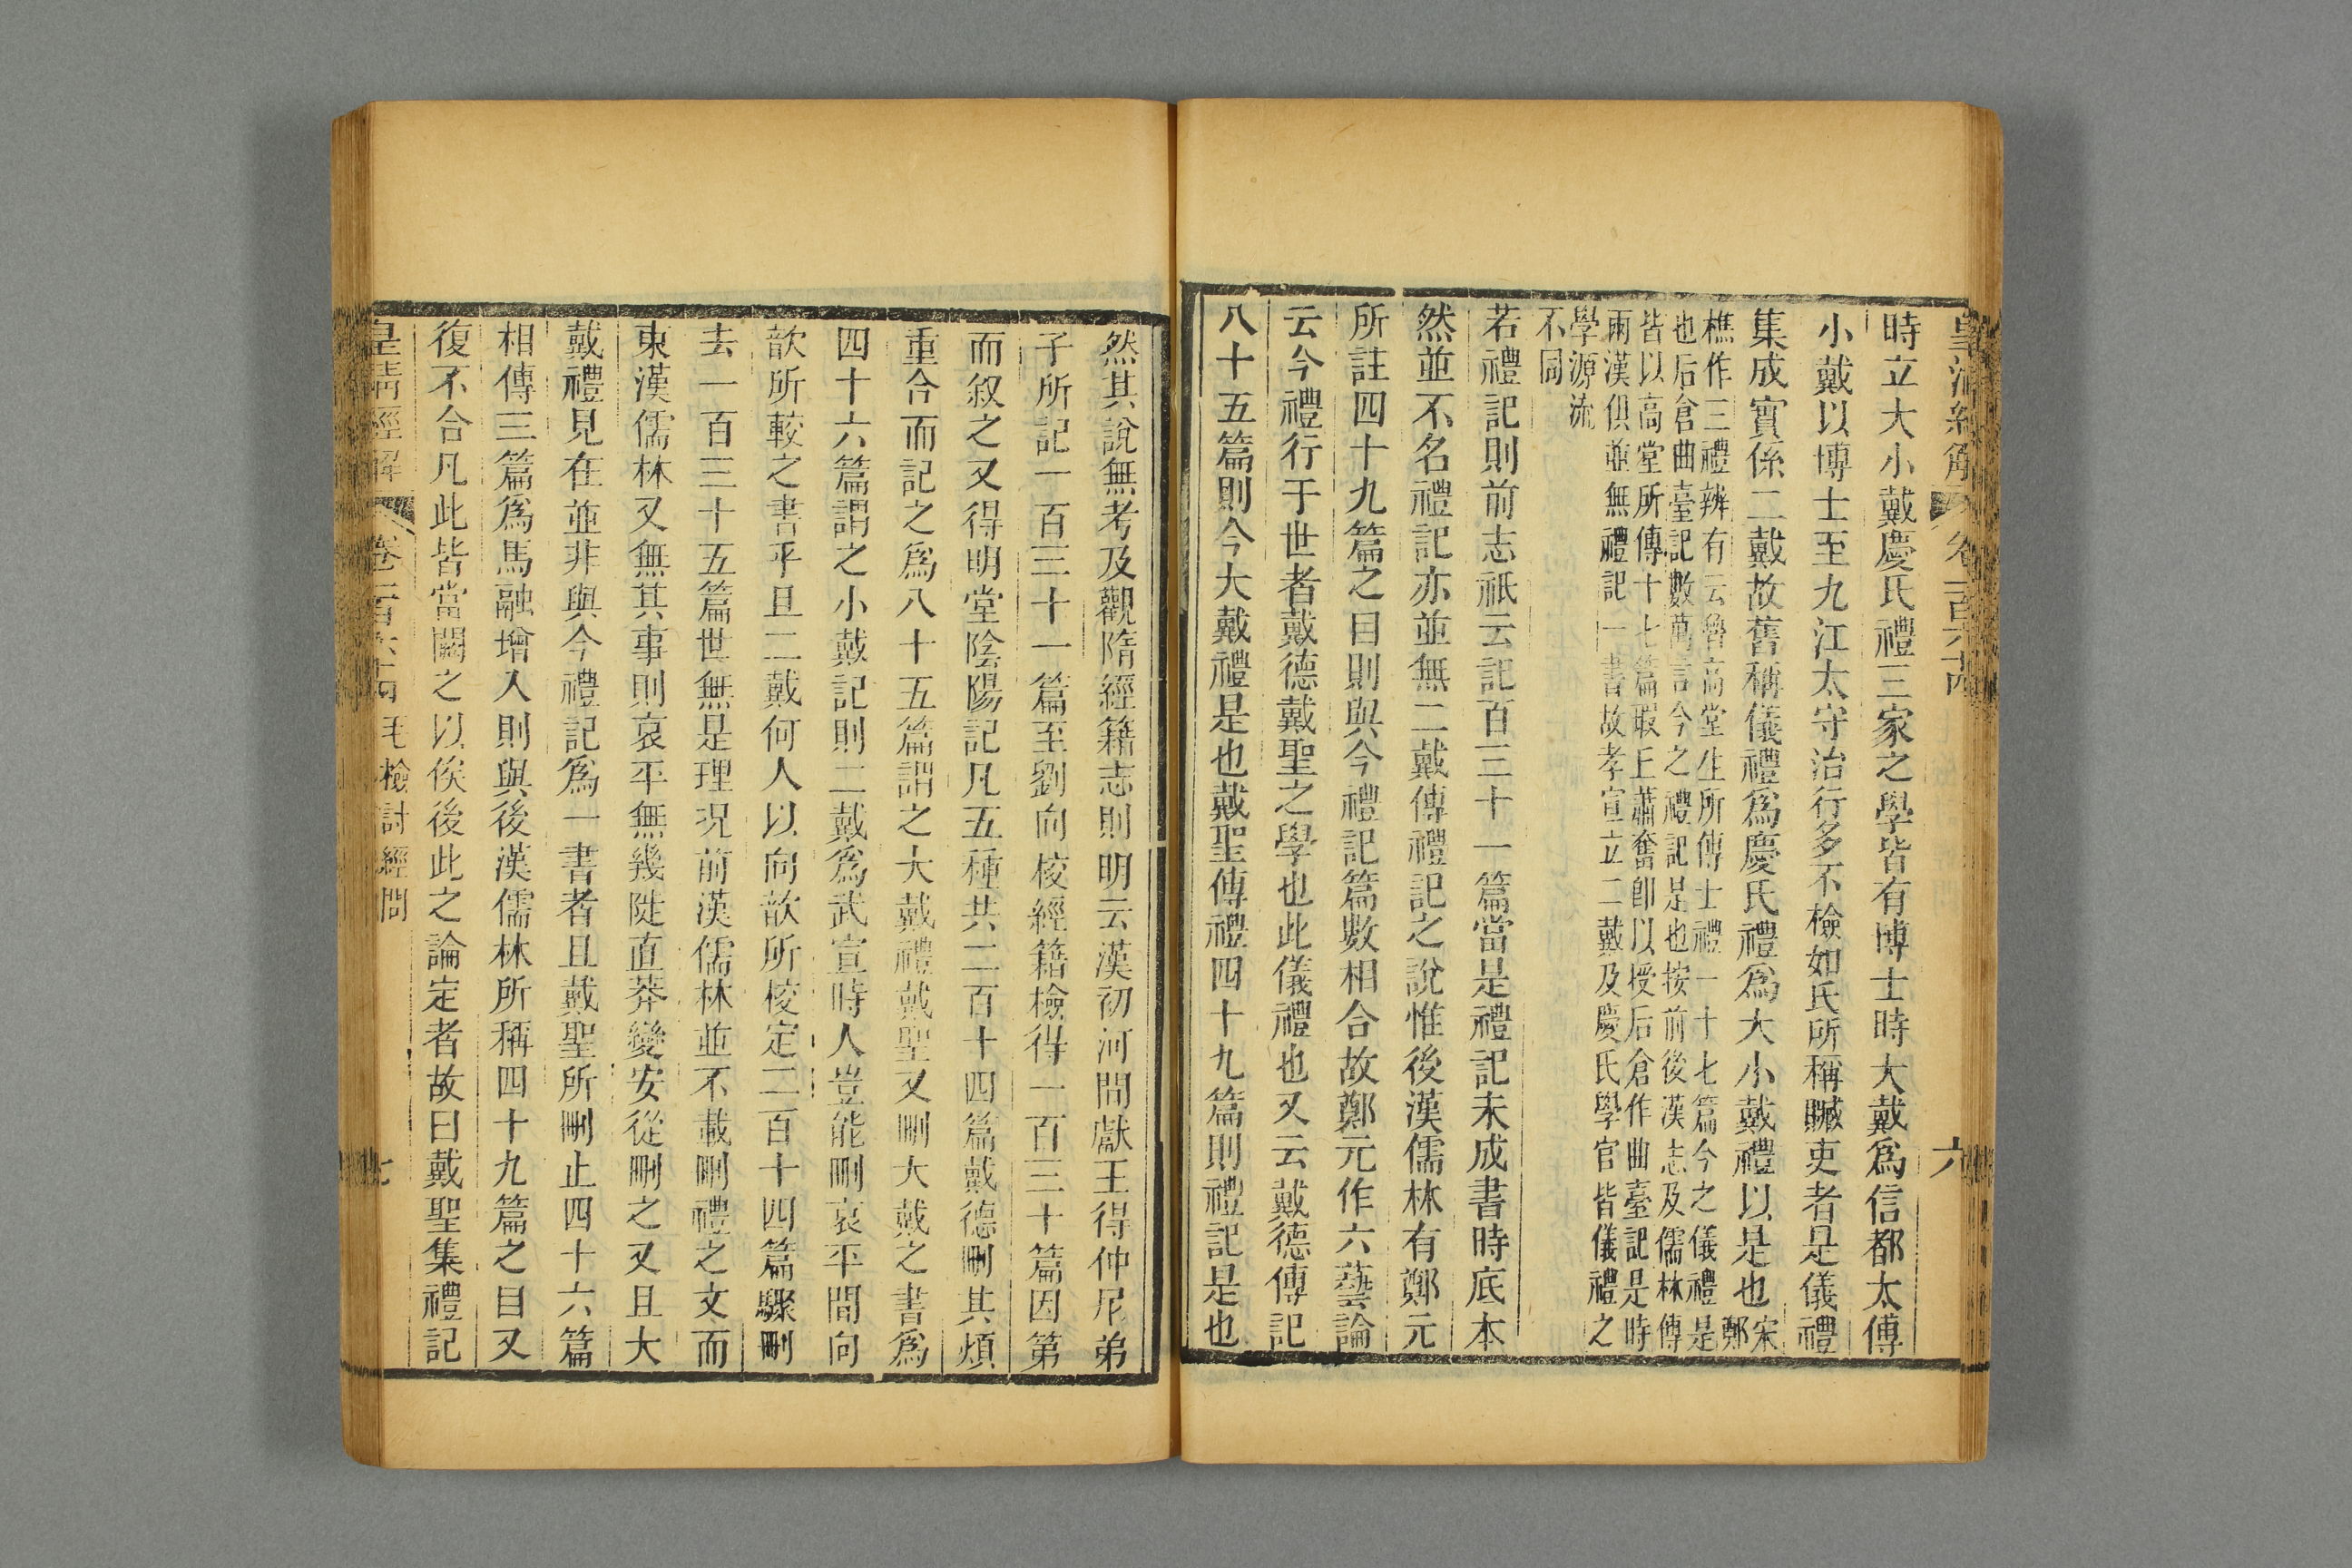 皇清經解 卷一百六十四 六
時立大小戴慶氏禮三家之學皆有博士時大戴爲信都太傅
小戴以博士至九江太守治行多不檢如氏所稱贓吏者是儀禮
集成實係二戴故舊稱儀禮爲慶氏禮爲大小戴禮以是也宋
鄭
樵作三禮辨有云魯高堂生所傳士禮一十七篇今之儀禮是
也后倉曲臺記數萬言今之禮記是也按前後漢志及儒林傳
皆以高堂所傳十七篇瑕丘蕭奮卽以授后倉作曲臺記是時
兩漢俱並無禮記一書故孝宣立二戴及慶氏學官皆儀禮之
學源流
不同
若禮記則前志祇云記百三十一篇當是禮記未成書時底本
然並不名禮記亦並無二戴傳禮記之說惟後漢儒林有鄭元
所註四十九篇之目則與今禮記篇數相合故鄭元作六藝論
云今禮行于世者戴德戴聖之學也此儀禮也又云戴德傳記
八十五篇則今大戴禮是也戴聖傳禮四十九篇則禮記是也
然其說無考及觀隋經籍志則明云漢初河間獻王得仲尼弟
子所記一百三十一篇至劉向校經籍檢得一百三十篇因第
而叙之又得明堂陰陽記凡五種共二百十四篇戴德刪其煩
重合而記之爲八十五篇謂之大戴禮戴聖又刪大戴之書爲
四十六篇謂之小戴記則二戴爲武宣時人豈能刪哀平間向
歆所較之書乎且二戴何人以向歆所校定二百十四篇驟刪
去一百三十五篇世無是理况前漢儒林並不載刪禮之文而
東漢儒林又無其事則哀平無幾陡直莽變安從刪之又且大
戴禮見在並非與今禮記爲一書者且戴聖所刪止四十六篇
相傳三篇爲馬融增入則與後漢儒林所稱四十九篇之目又
復不合凡此皆當闕之以俟後此之論定者故曰戴聖集禮記
皇清經解 卷一百六十四 毛檢討經問 七